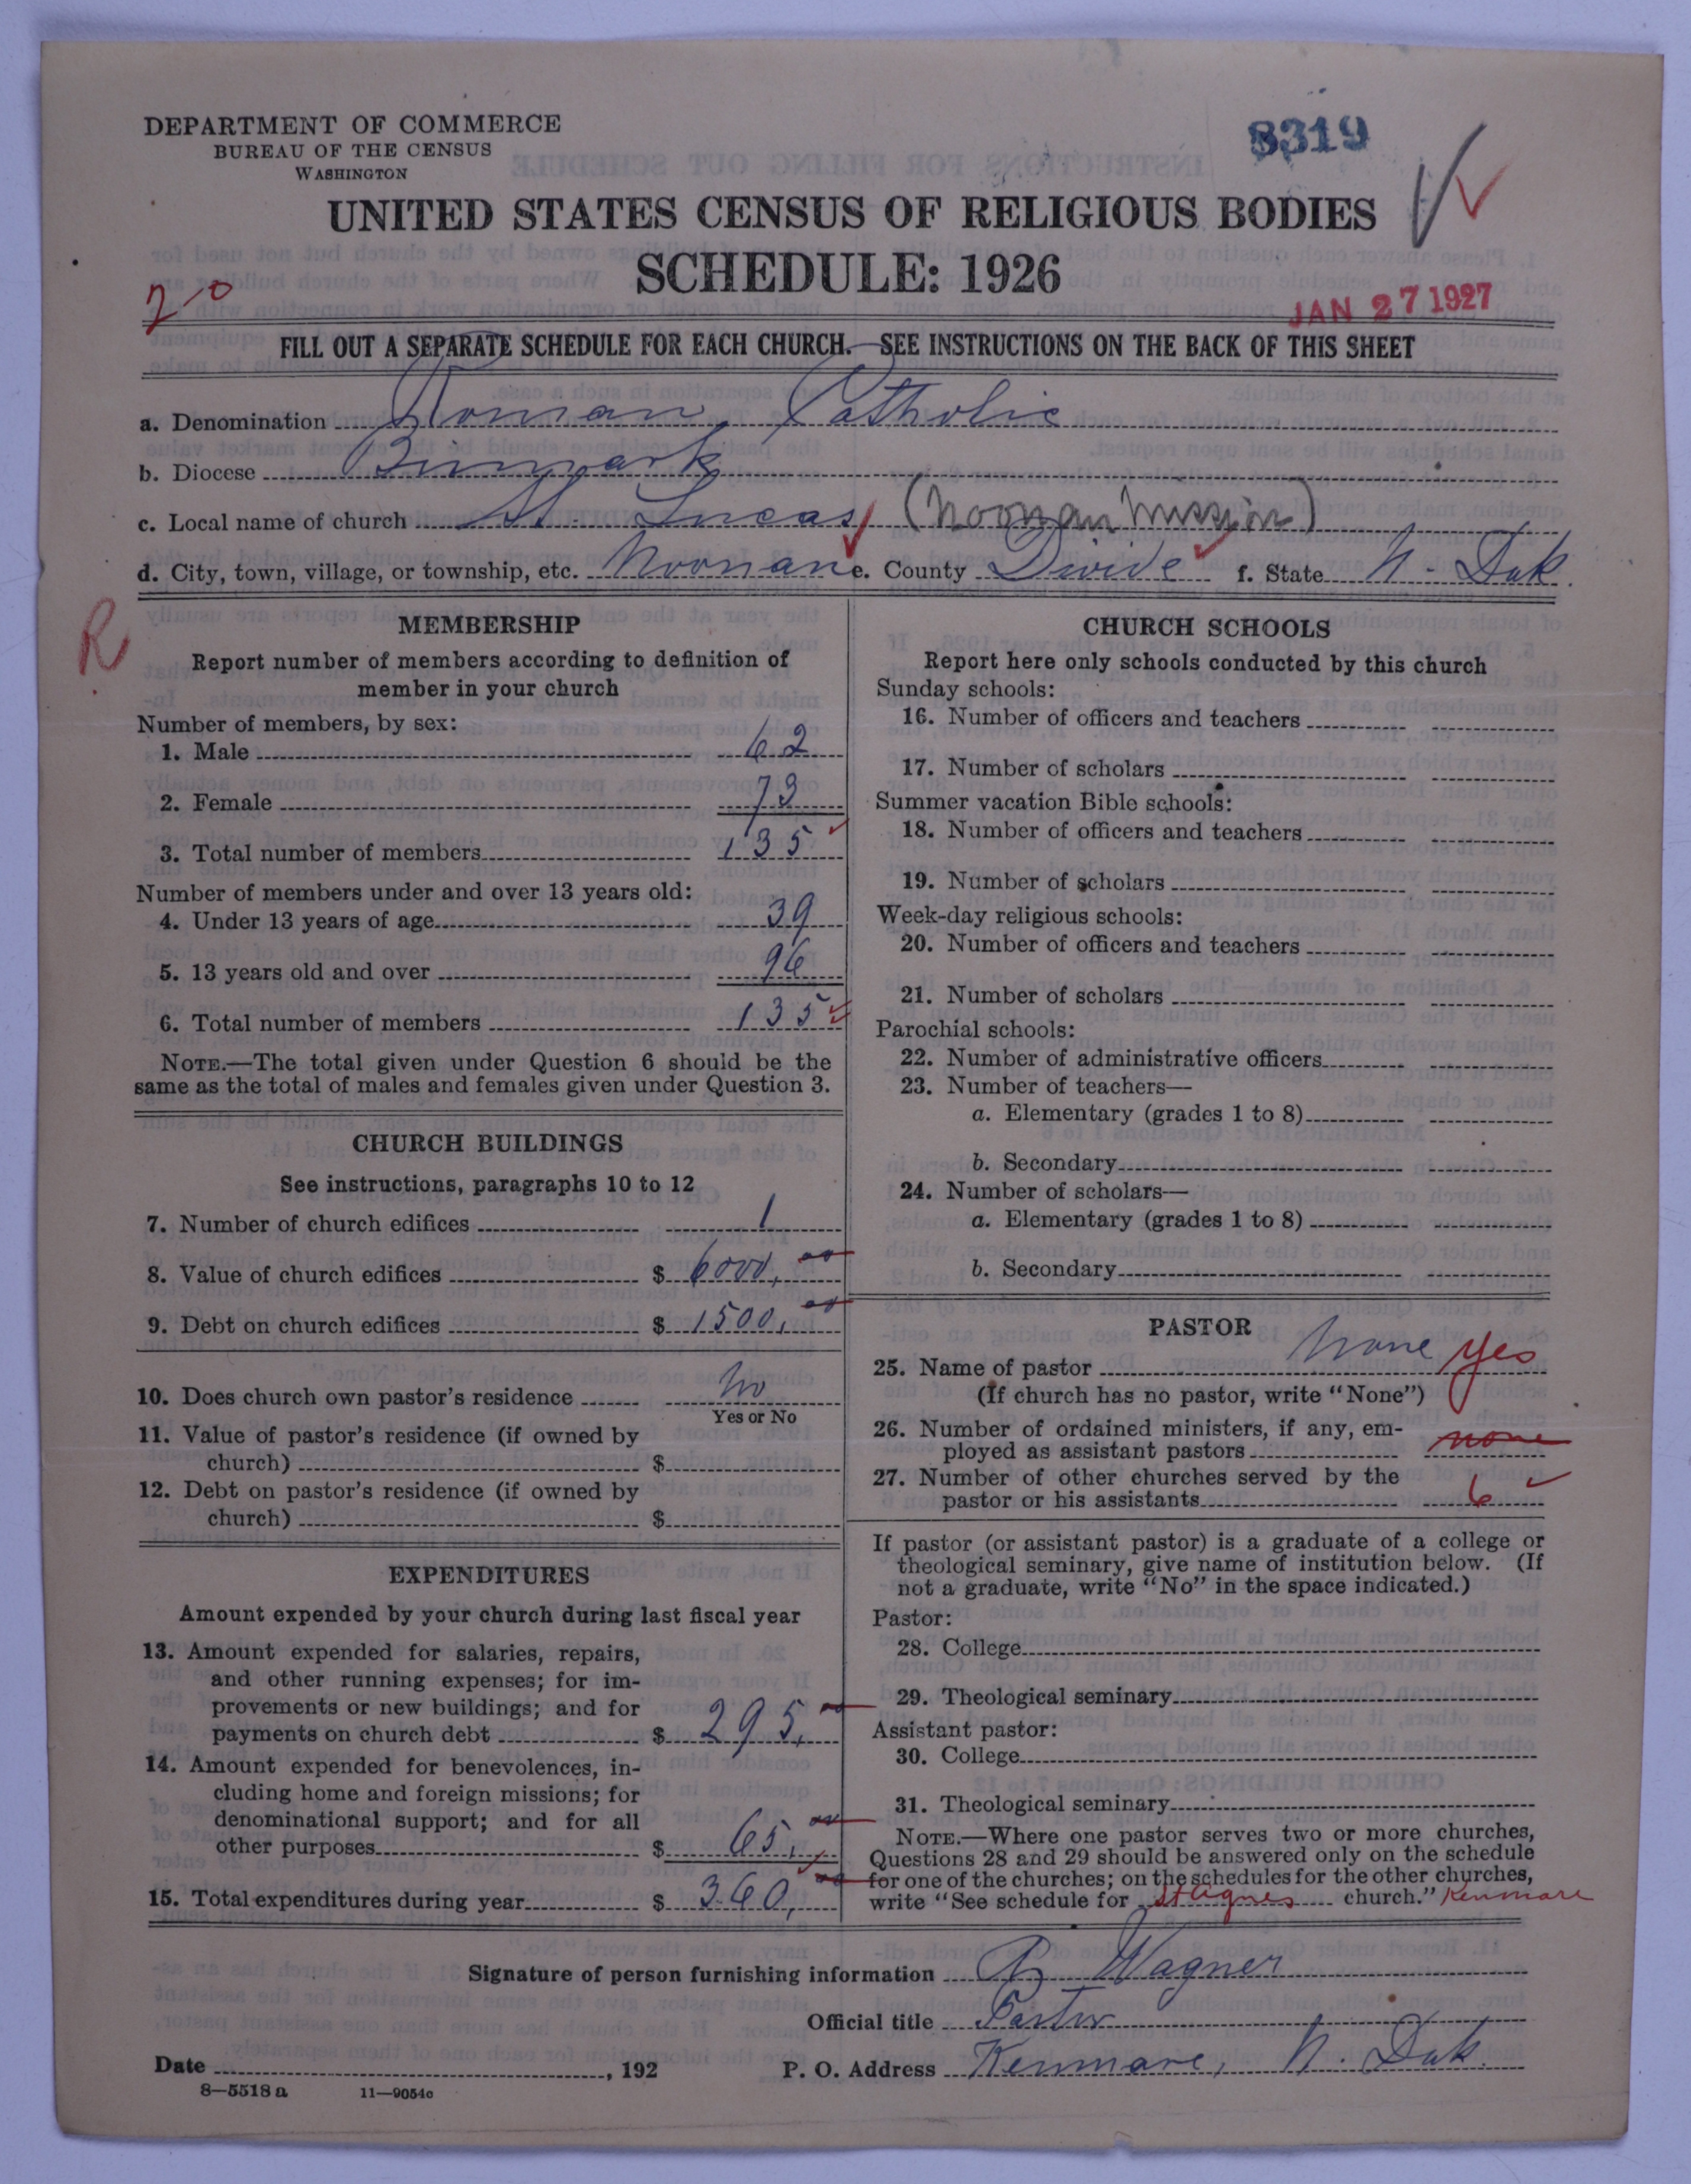 DEPARTMENT OF COMMERCE
BUREAU OF THE CENSUS
WASHINGTON
8319
UNITED STATES CENSUS OF RELIGIOUS BODIES
SCHEDULE: 1926
2-0
JAN 27 1927
FILL OUT A SEPARATE SCHEDULE FOR EACH CHURCH. SEE INSTRUCTIONS ON THE BACK OF THIS SHEET
a. Denomination Roman Catholic
b. Diocese Bismark
c. Local name of church St. Lucas (Noonan Mission)
d. City, town, village, or township, etc. Noonan e. County Divide f. State N. Dak.
R
MEMBERSHIP
Report number of members according to definition of
member in your church
Number of members, by sex:
1. Male 62
2. Female 73
3. Total number of members 135
Number of members under and over 13 years old:
4. Under 13 years of age 39
5. 13 years old and over 96
6. Total number of members 135
NOTE.—The total given under Question 6 should be the
same as the total of males and females given under Question 3.
CHURCH BUILDINGS
See instructions, paragraphs 10 to 12
7. Number of church edifices 1
8. Value of church edifices $ 6000,00
9. Debt on church edifices $ 1500,00
10. Does church own pastor's residence No
Yes or No
11. Value of pastor's residence (if owned by
church) $
12. Debt on pastor's residence (if owned by
church) $
EXPENDITURES
Amount expended by your church during last fiscal year
13. Amount expended for salaries, repairs,
and other running expenses; for im-
provements or new buildings; and for
payments on church debt $ 295,
14. Amount expended for benevolences, in-
cluding home and foreign missions; for
denominational support; and for all
other purposes $ 65,00
15. Total expenditures during year $ 360,00
CHURCH SCHOOLS
Report here only schools conducted by this church
Sunday schools:
16. Number of officers and teachers
17. Number of scholars
Summer vacation Bible schools:
18. Number of officers and teachers
19. Number of scholars
Week-day religious schools:
20. Number of officers and teachers
21. Number of scholars
Parochial schools:
22. Number of administrative officers
23. Number of teachers—
a. Elementary (grades 1 to 8)
b. Secondary
24. Number of scholars—
a. Elementary (grades 1 to 8)
b. Secondary
PASTOR
25. Name of pastor None yes
(If church has no pastor, write "None")
26. Number of ordained ministers, if any, em-
ployed as assistant pastors none
27. Number of other churches served by the
pastor or his assistants 6
If pastor (or assistant pastor) is a graduate of a college or
theological seminary, give name of institution below. (If
not a graduate, write "No" in the space indicated.)
Pastor:
28. College
29. Theological seminary
Assistant pastor:
30. College
31. Theological seminary
NOTE.—Where one pastor serves two or more churches,
Questions 28 and 29 should be answered only on the schedule
for one of the churches; on the schedules for the other churches,
write "See schedule for St Agnes church." Kenmare
Signature of person furnishing information Wagner
Official title Pastor
Date , 192 P. O. Address Kenmare, N. Dak.
8—5518 a 11—9054c